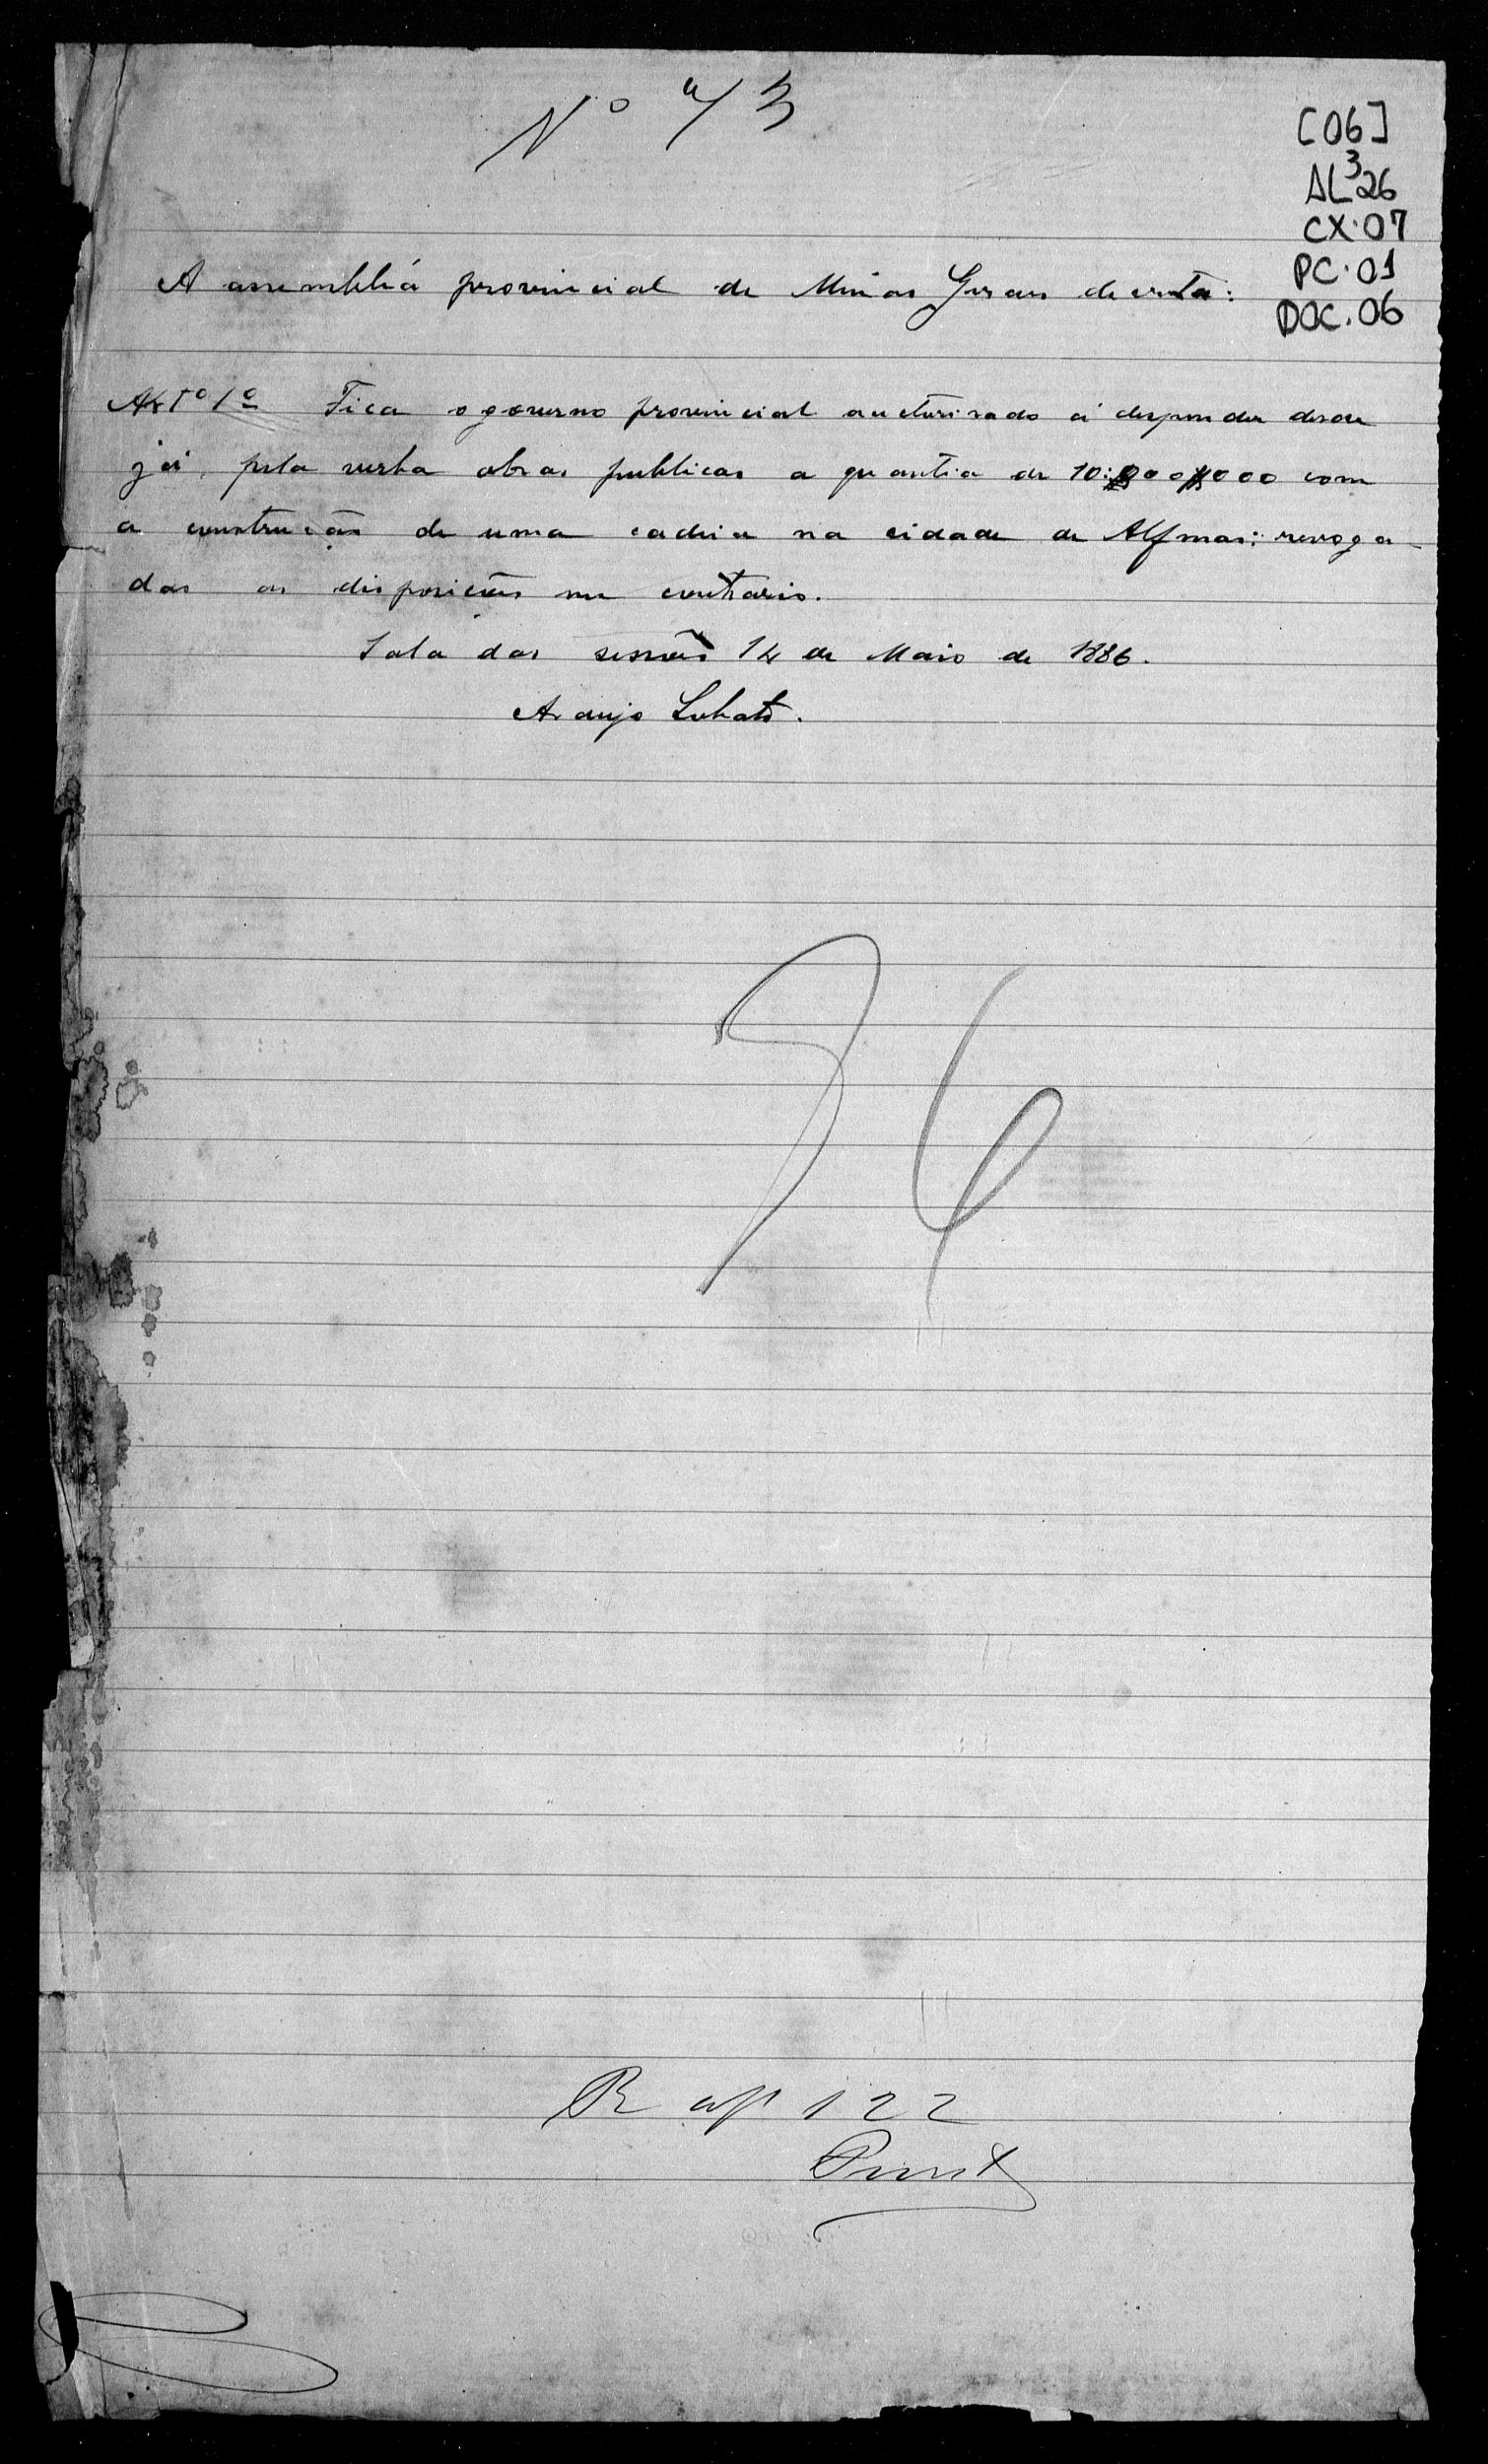 Nº 73
[06]
AL³26
CX.07
PC.01
DOC.06
A assembléa provincial de Minas Geraes decreta:
Artº 1º Fica o governo provincial aucturisado á despender desde
já, pela verba obras publicas a quantia de 10:000$000 com
a construcção de uma cadeia na cidade de Alfenas; revoga-
das as disposições em contrario.
Sala das sessões 14 de Maio de 1886.
Araujo Lobato.
36
R ap 122